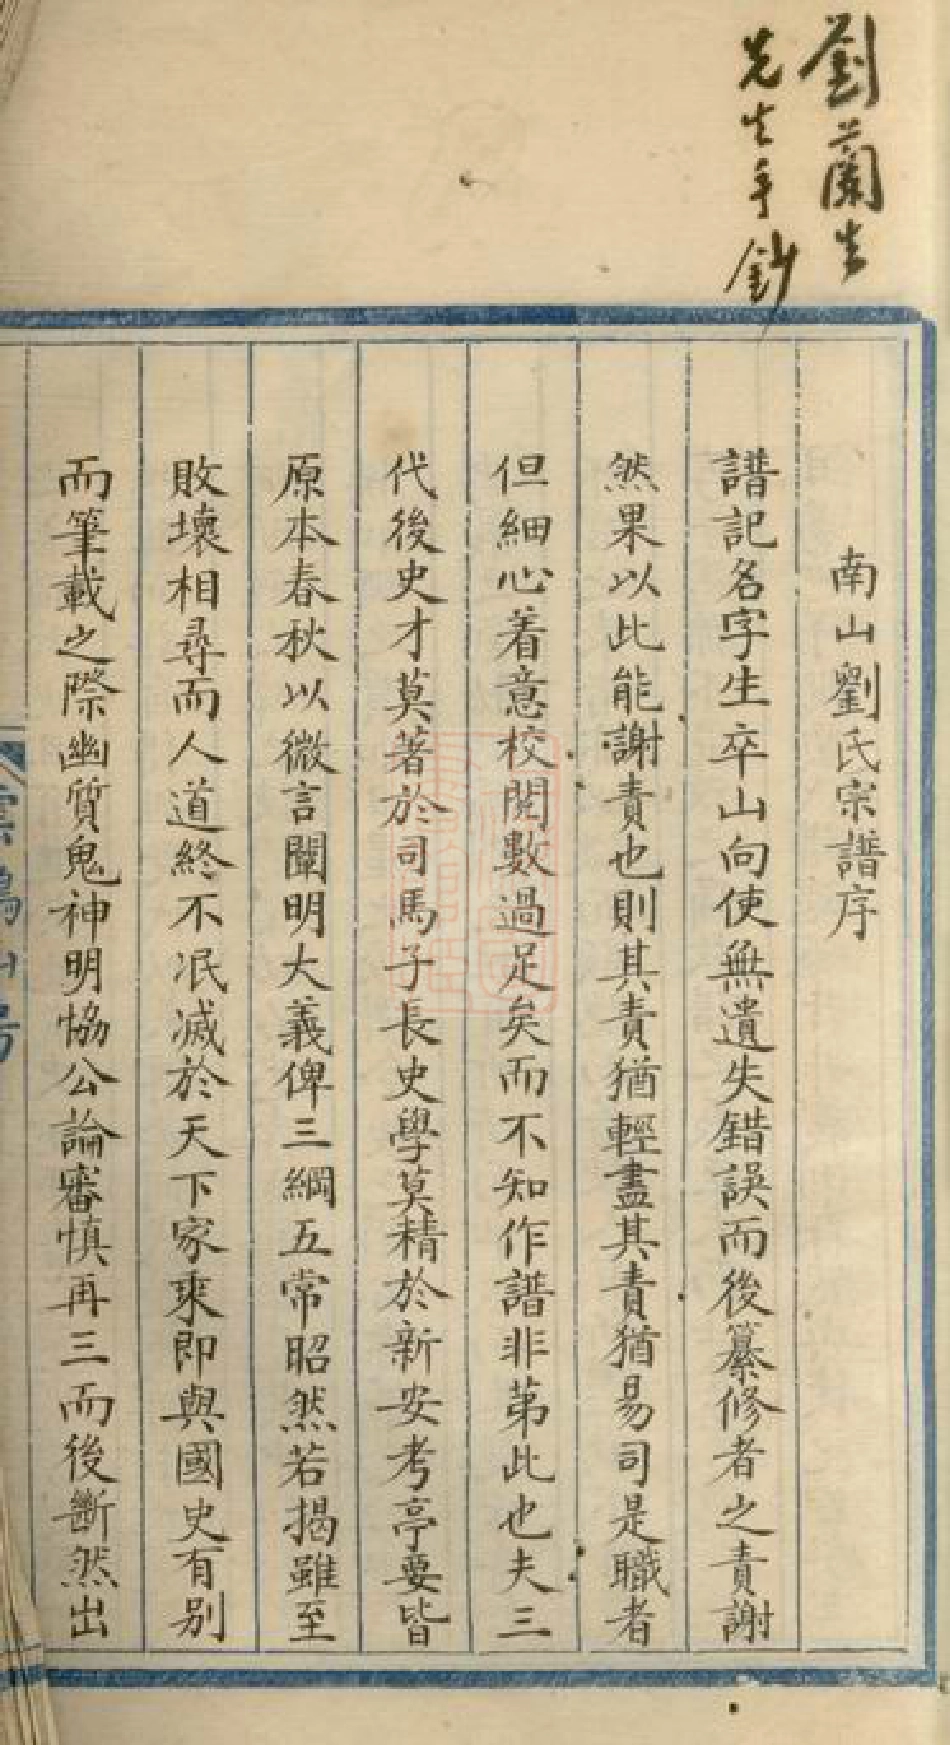 劉蘭生
先生手鈔
南山劉氏宗譜序
譜記名字生卒山向使無遺失錯誤而後纂修者之責謝
然果以此能謝責也則其責猶輕盡其責猶易司是職者
但細心着意校閱數過足矣而不知作譜非第此也夫三
代後史才莫著於司馬子長史學莫精於新安考亭要皆
原本春秋以微言闡明大義俾三綱五常昭然若揭雖至
敗壞相尋而人道終不泯滅於天下家乘即與國史有別
而筆載之際幽質鬼神明協公論審慎再三而後斷然出